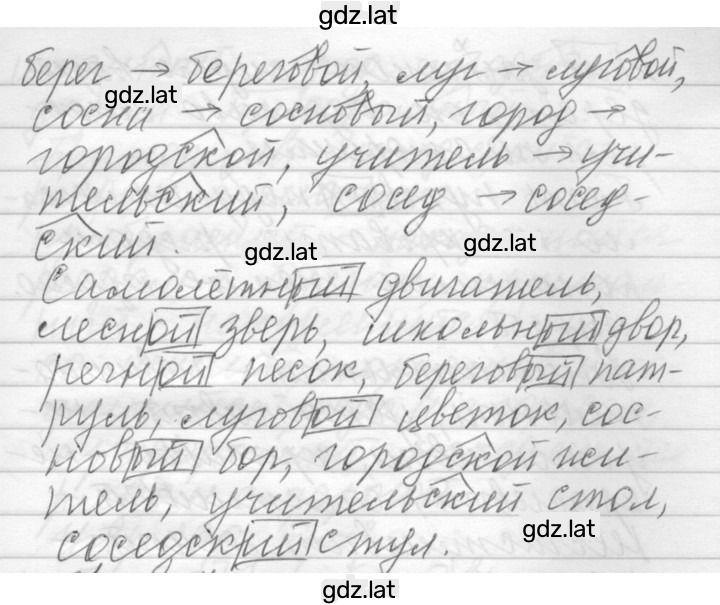 gdz.lat
берег → береговой, луг → луговой,
gdz.lat
сосна → сосновый, город →
городской, учитель → учи-
тельский, сосед → сосед-
ский.
gdz.lat
gdz.lat
Самолётный двигатель,
лесной зверь, школьный двор,
речной песок, береговой пат-
руль, луговой цветок, сос-
новый бор, городской жи-
тель, учительский стол,
gdz.lat
соседский стул.
gdz.lat